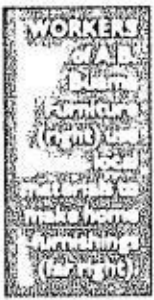 WORKERS
of A.B.
Furniture
(right) use
local
materials to
make home
furnishings
(far right).